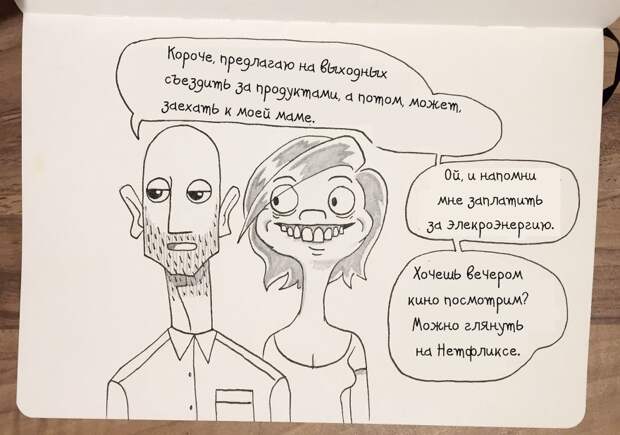 Короче, предлагаю на выходных
съездить за продуктами, а потом, может,
заехать к моей маме.
Ой, и напомни
мне заплатить
за элекроэнергию.
Хочешь вечером
кино посмотрим?
Можно глянуть
на Нетфликсе.